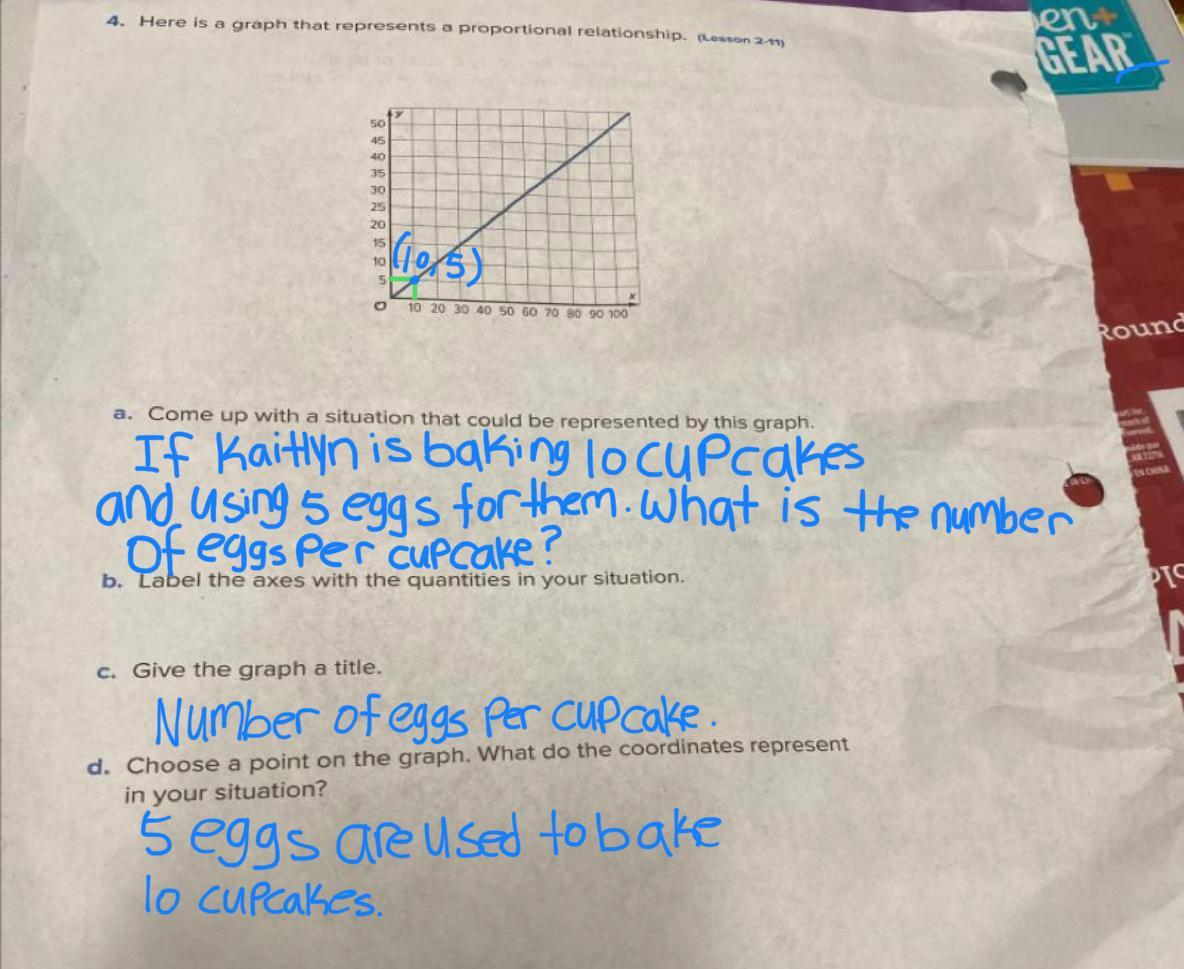 4. Here is a graph that represents a proportional relationship. (Lesson 2-11)
en+
GEAR
y
50
45
40
35
30
25
20
15
10
5
(10,5)
O 10 20 30 40 50 60 70 80 90 100
x
Round
a. Come up with a situation that could be represented by this graph.
If Kaitlyn is baking 10 cupcakes
and using 5 eggs for them. What is the number
of eggs per cupcake?
EN CHINA
b. Label the axes with the quantities in your situation.
c. Give the graph a title.
Number of eggs per cupcake.
d. Choose a point on the graph. What do the coordinates represent
in your situation?
5 eggs are used to bake
10 cupcakes.